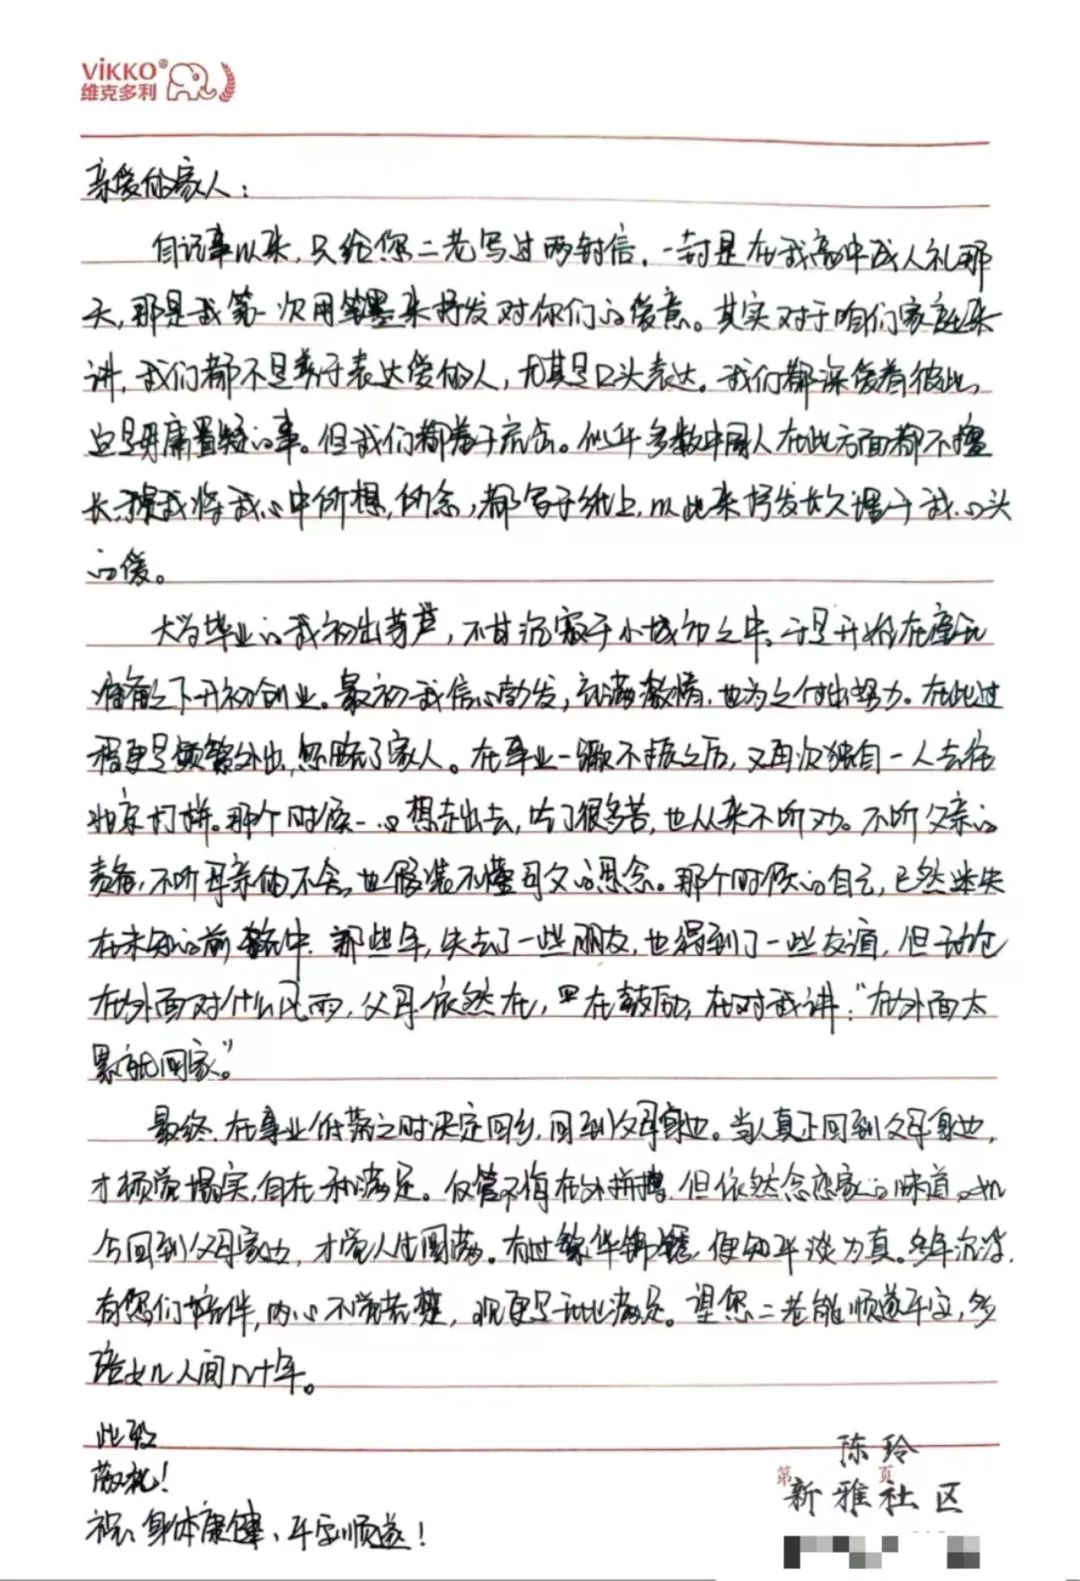 ViKKO®
维克多利
亲爱的家人：
自记事以来，只给您二老写过两封信，一封是在我高中成人礼那
天，那是我第一次用笔墨来抒发对你们的爱意。其实对于咱们家庭来
讲，我们都不是善于表达爱的人，尤其是口头表达。我们都深爱着彼此，
这是毋庸置疑的事。但我们都羞于言。似乎多数中国人在此方面都不擅
长，我将我心中所想，所念，都写于纸上，以此来抒发久埋于我心头
的爱。
大学毕业的我初出茅芦，不甘沉寂于小城市之中，于是开始在毫无
准备之下开初创业。最初我信心勃发，充满激情，也为之付出努力。在此过
程更是频繁外出，忽略了家人。在事业一蹶不振之后，又再次独自一人去往
北京打拼。那个时候一心想走出去，吃了很多苦，也从来不听劝。不听父亲的
责备，不听母亲的不舍，也假装不懂司父的思念。那个时候的自己，已然迷失
在未知的前路中。那些年，失去了一些朋友，也得到了一些友谊，但无论
在外面对什么风雨，父母依然在，里在鼓励，在对我讲：“在外面太
累就回家。”
最终，在事业低落之时决定回乡，回到父母身边。当人真正回到父母身边，
才顿觉塌实，自在和满足。仅管不悔在外拼搏，但依然念恋家的味道。如
今回到父母家边，才觉人生圆满。有过繁华锦绣，便知平淡为真。多年沉浮，
有您们陪伴，内心不觉苦楚，观更是无比满足。望您二老能顺遂平安，多
陪女儿人间几十年。
此致
敬礼！
祝：身体康健、平安顺遂！
陈玲
第 页
新雅社区